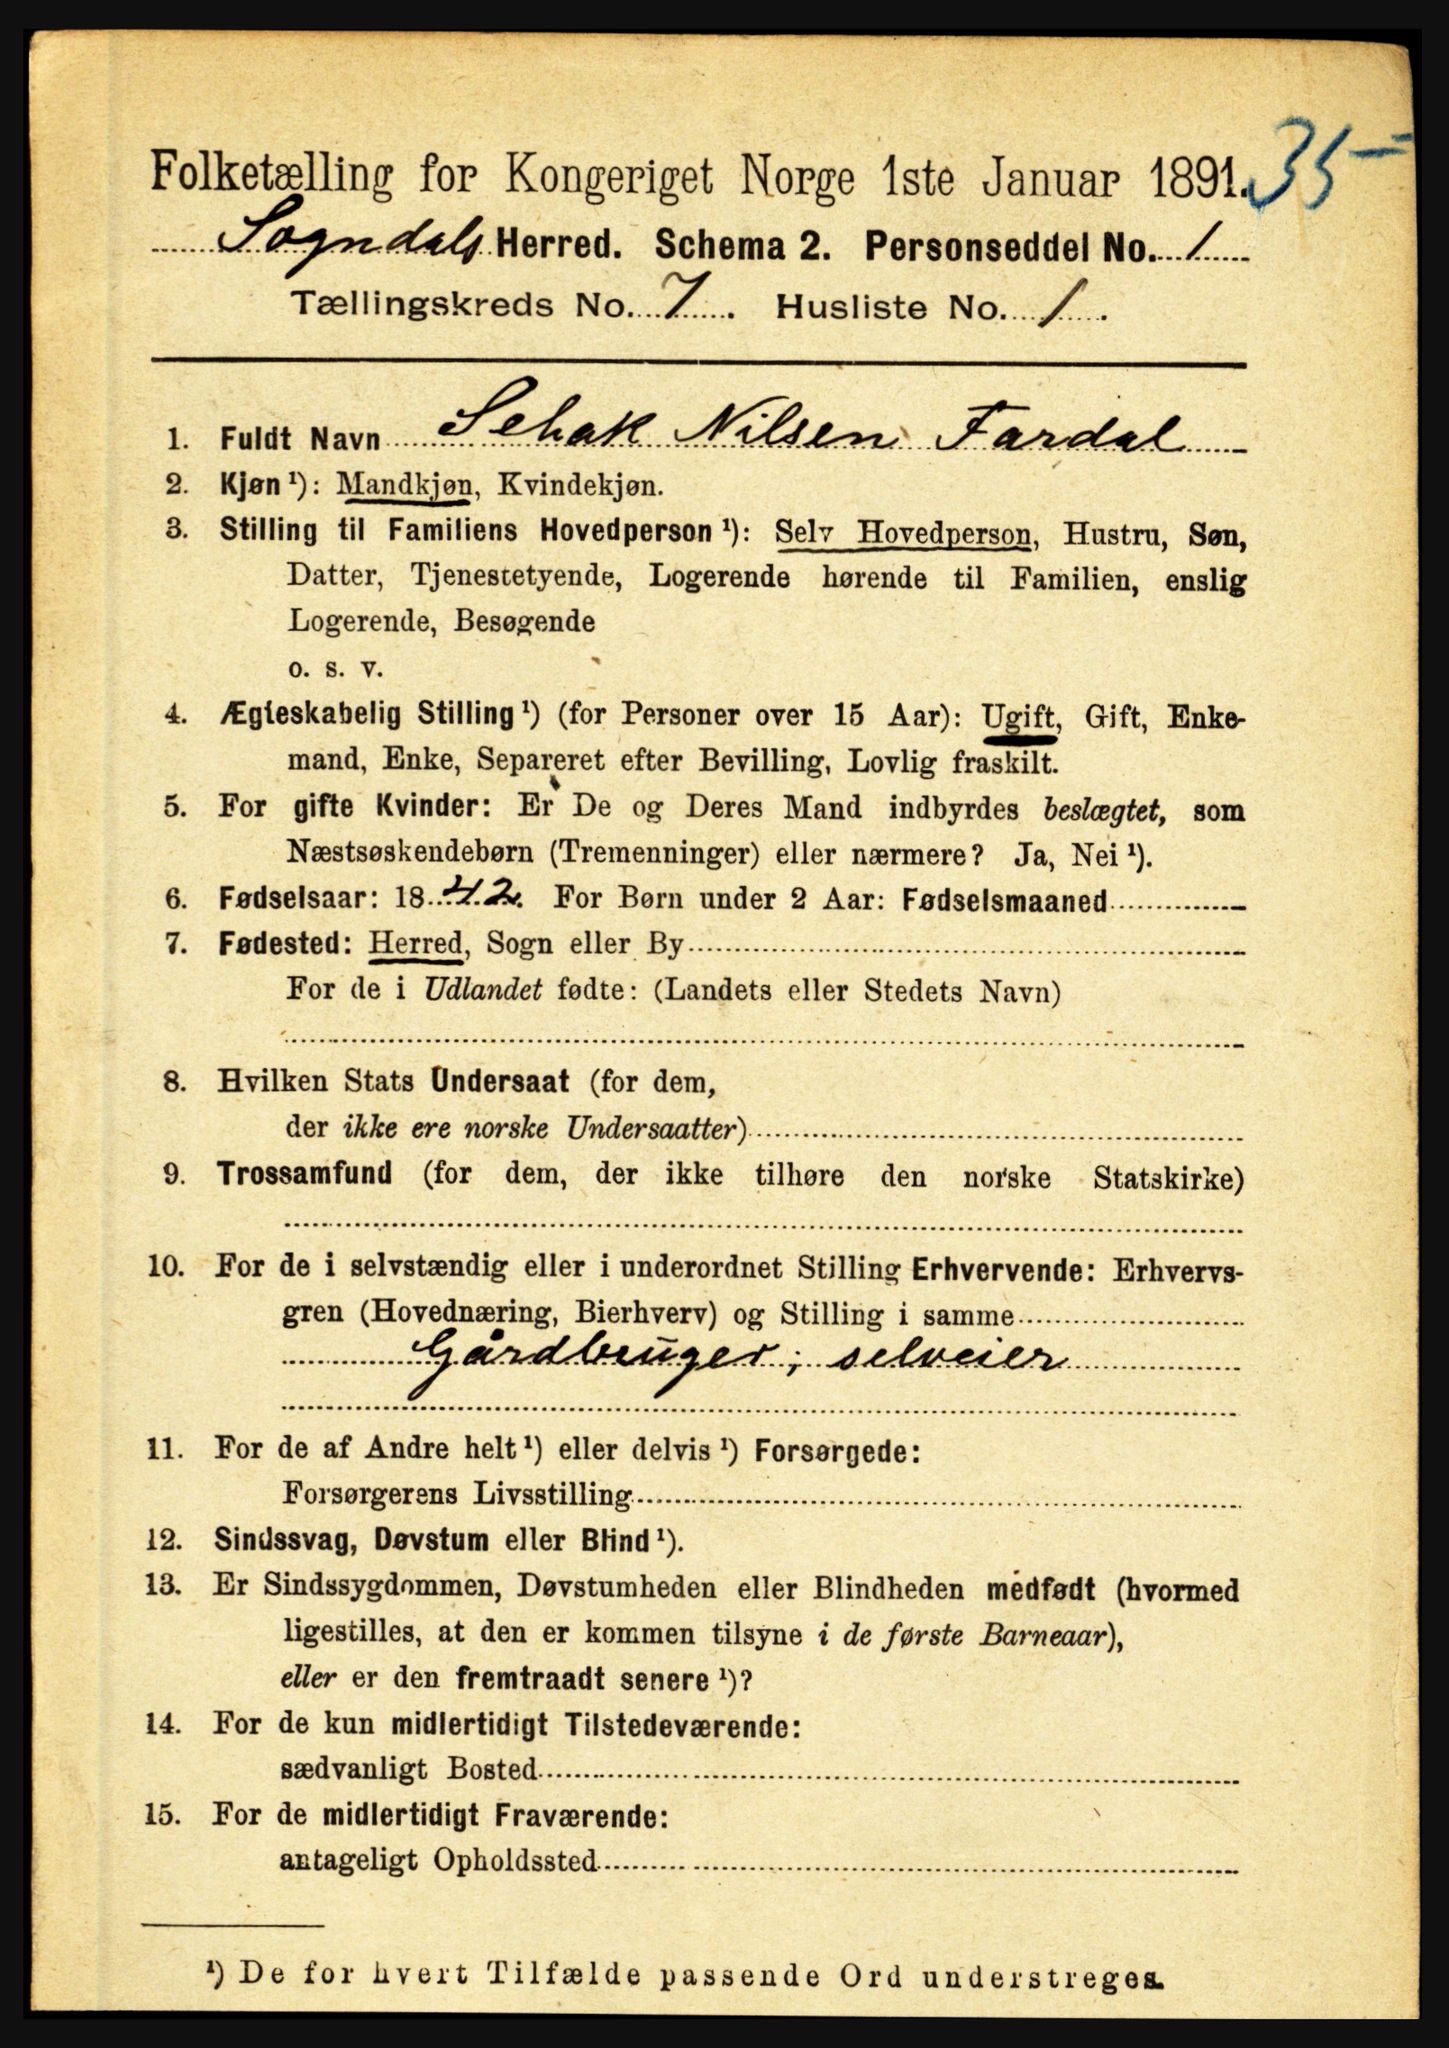 35-
Folketælling for Kongeriget Norge 1ste Januar 1891.
Sogndals Herred. Schema 2. Personseddel No. 1
Tællingskreds No. 7. Husliste No. 1.
1. Fuldt Navn Sehak Nilsen Fardal
2. Kjøn ¹): Mandkjøn, Kvindekjøn.
3. Stilling til Familiens Hovedperson ¹): Selv Hovedperson, Hustru, Søn,
Datter, Tjenestetyende, Logerende hørende til Familien, enslig
Logerende, Besøgende
o. s. v.
4. Ægteskabelig Stilling ¹) (for Personer over 15 Aar): Ugift, Gift, Enke-
mand, Enke, Separeret efter Bevilling, Lovlig fraskilt.
5. For gifte Kvinder: Er De og Deres Mand indbyrdes beslægtet, som
Næstsøskendebørn (Tremenninger) eller nærmere? Ja, Nei ¹).
6. Fødselsaar: 1842. For Børn under 2 Aar: Fødselsmaaned
7. Fødested: Herred, Sogn eller By
For de i Udlandet fødte: (Landets eller Stedets Navn)
8. Hvilken Stats Undersaat (for dem,
der ikke ere norske Undersaatter)
9. Trossamfund (for dem, der ikke tilhøre den norske Statskirke)
10. For de i selvstændig eller i underordnet Stilling Erhvervende: Erhvervs-
gren (Hovednæring, Bierhverv) og Stilling i samme
Gårdbruger, selveier
11. For de af Andre helt ¹) eller delvis ¹) Forsørgede:
Forsørgerens Livsstilling
12. Sindssvag, Døvstum eller Blind ¹).
13. Er Sindssygdommen, Døvstumheden eller Blindheden medfødt (hvormed
ligestilles, at den er kommen tilsyne i de første Barneaar),
eller er den fremtraadt senere ¹)?
14. For de kun midlertidigt Tilstedeværende:
sædvanligt Bosted
15. For de midlertidigt Fraværende:
antageligt Opholdssted
¹) De for hvert Tilfælde passende Ord understreges.